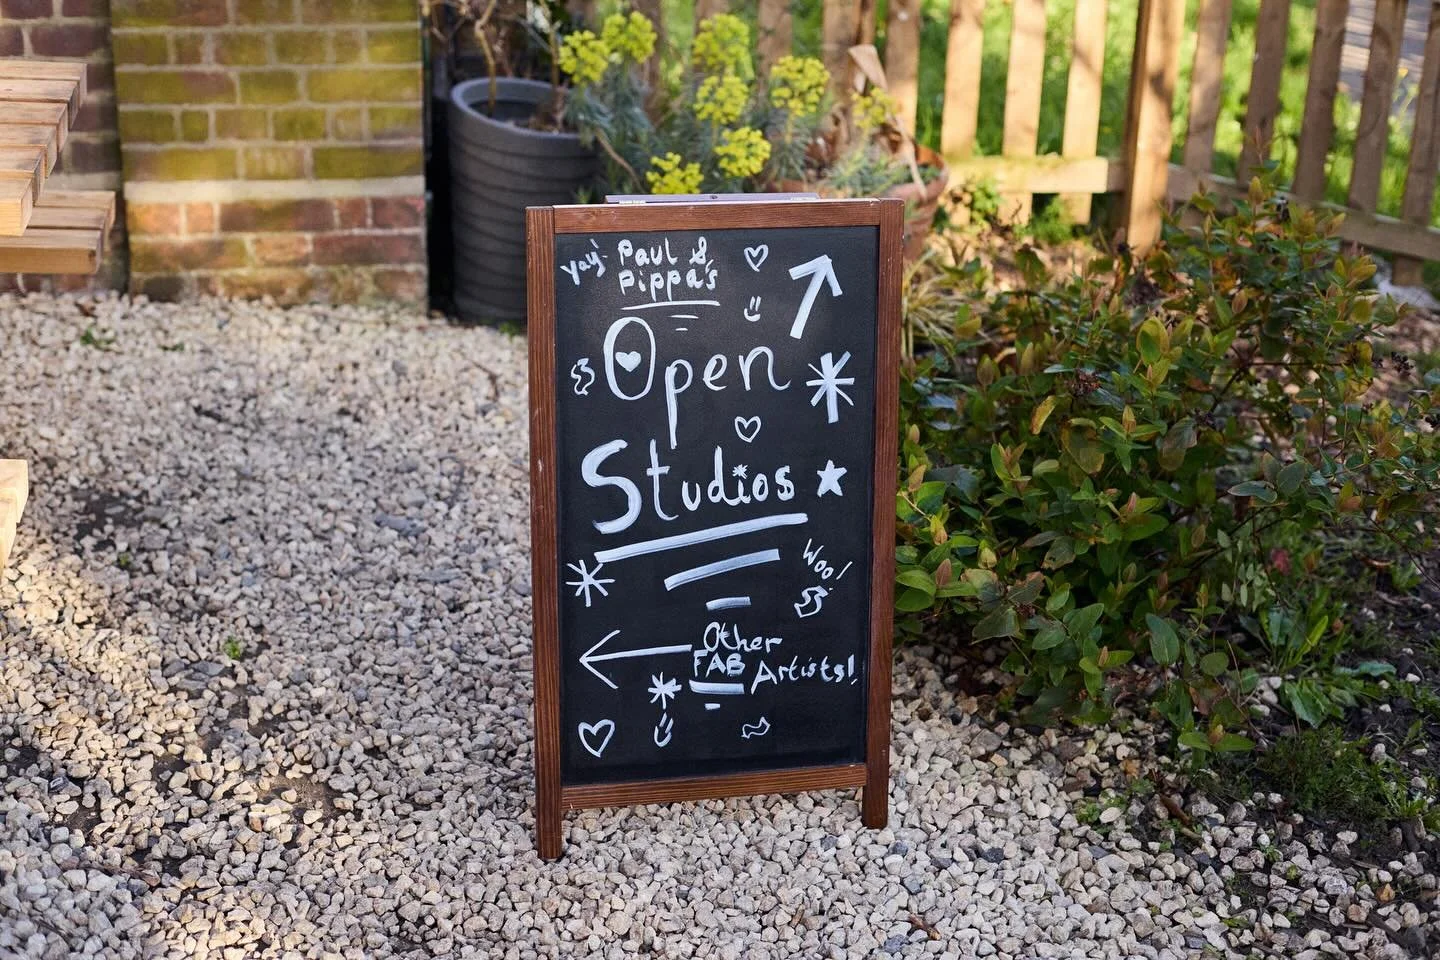 yay! Paul &
Pippa's
Open
Studios
Woo!
Other
FAB Artists!